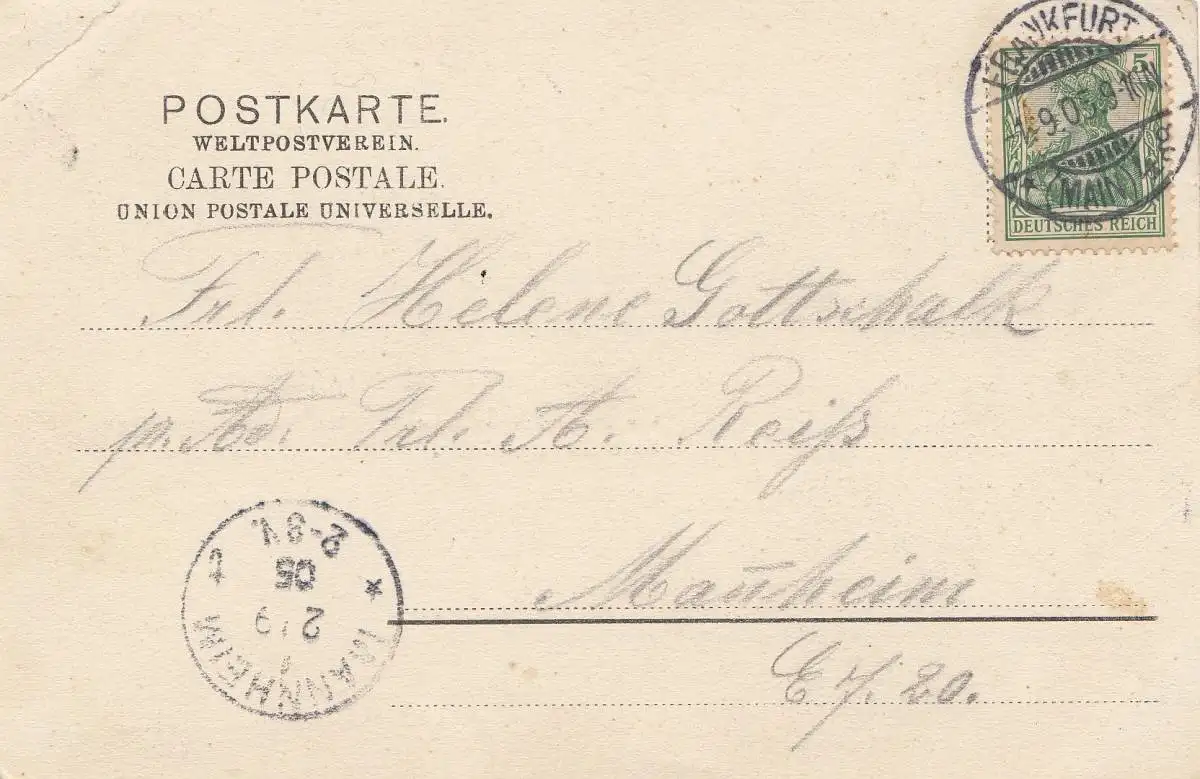 POSTKARTE.
WELTPOSTVEREIN.
CARTE POSTALE.
UNION POSTALE UNIVERSELLE.
FRANKFURT
9.05.9-10N.
(MAIN)
5
DEUTSCHES REICH
Frl. Helene Gottschalk
p. Ad. Frl. A. Reiß
Mañheim
C 7. 20.
MANNHEIM
2 9
05
2-3V.